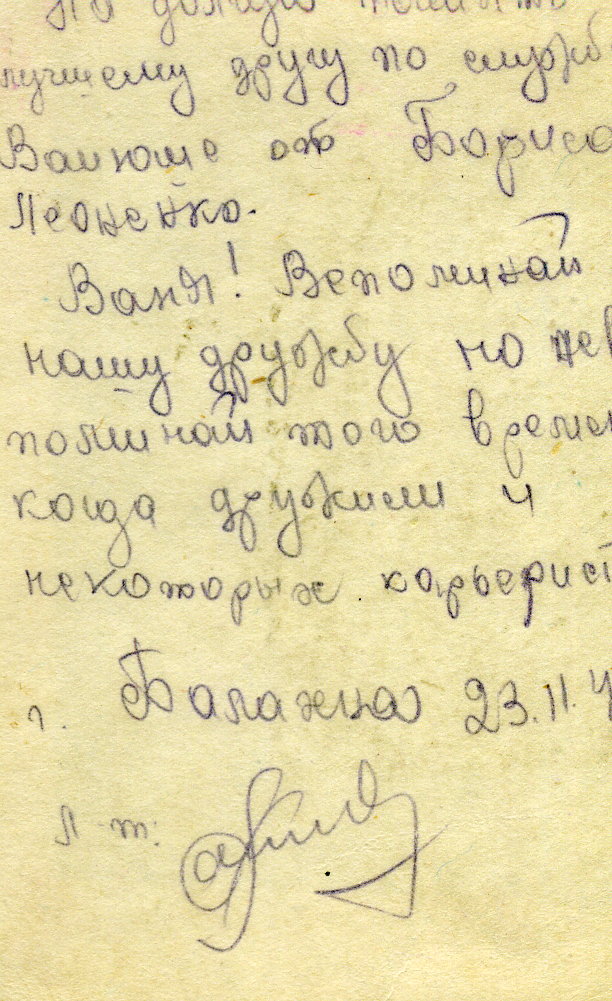 На долгую память
лучшему другу по служб
Ванюше от Бориса
Леоненко.
Ваня! Вспоминай
нашу дружбу но не в
поминай того времен
когда дружили и
некоторых карьерист
г. Балахна 23.11.4
л-т: